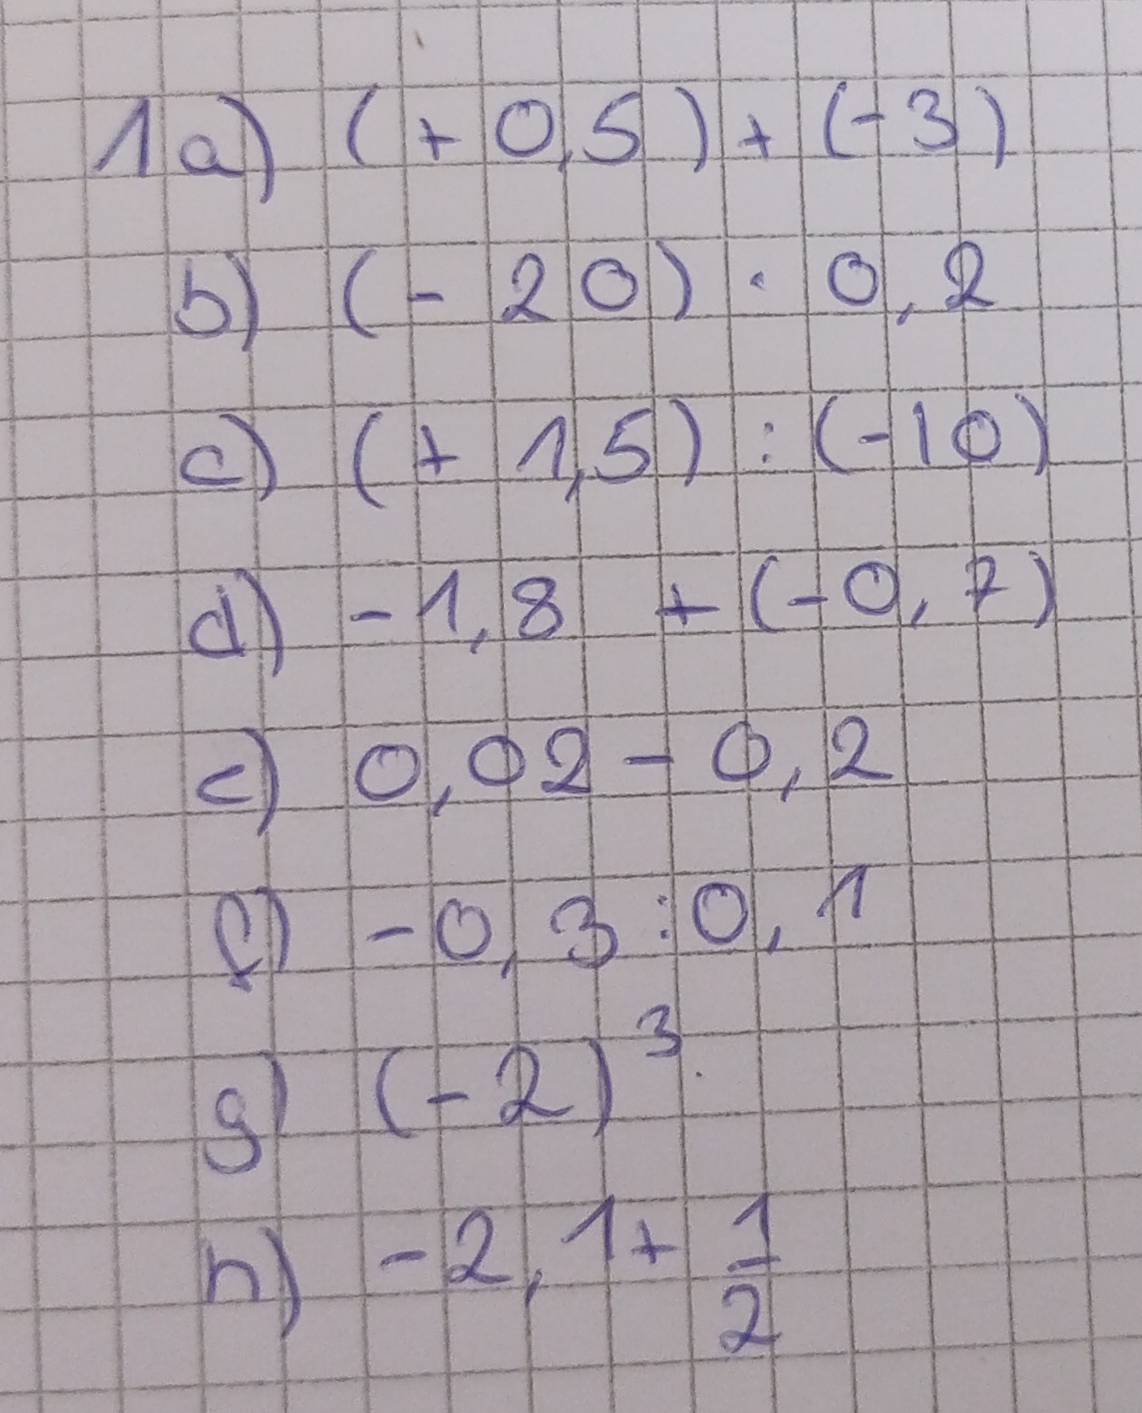 1a) (+0,5) + (-3)
b) (-20) · 0,2
c) (+1,5) : (-10)
d) -1,8 + (-0,7)
e) 0,02 - 0,2
f) -0,3 : 0,1
g) (-2)³
h) -2,1 + 1/2